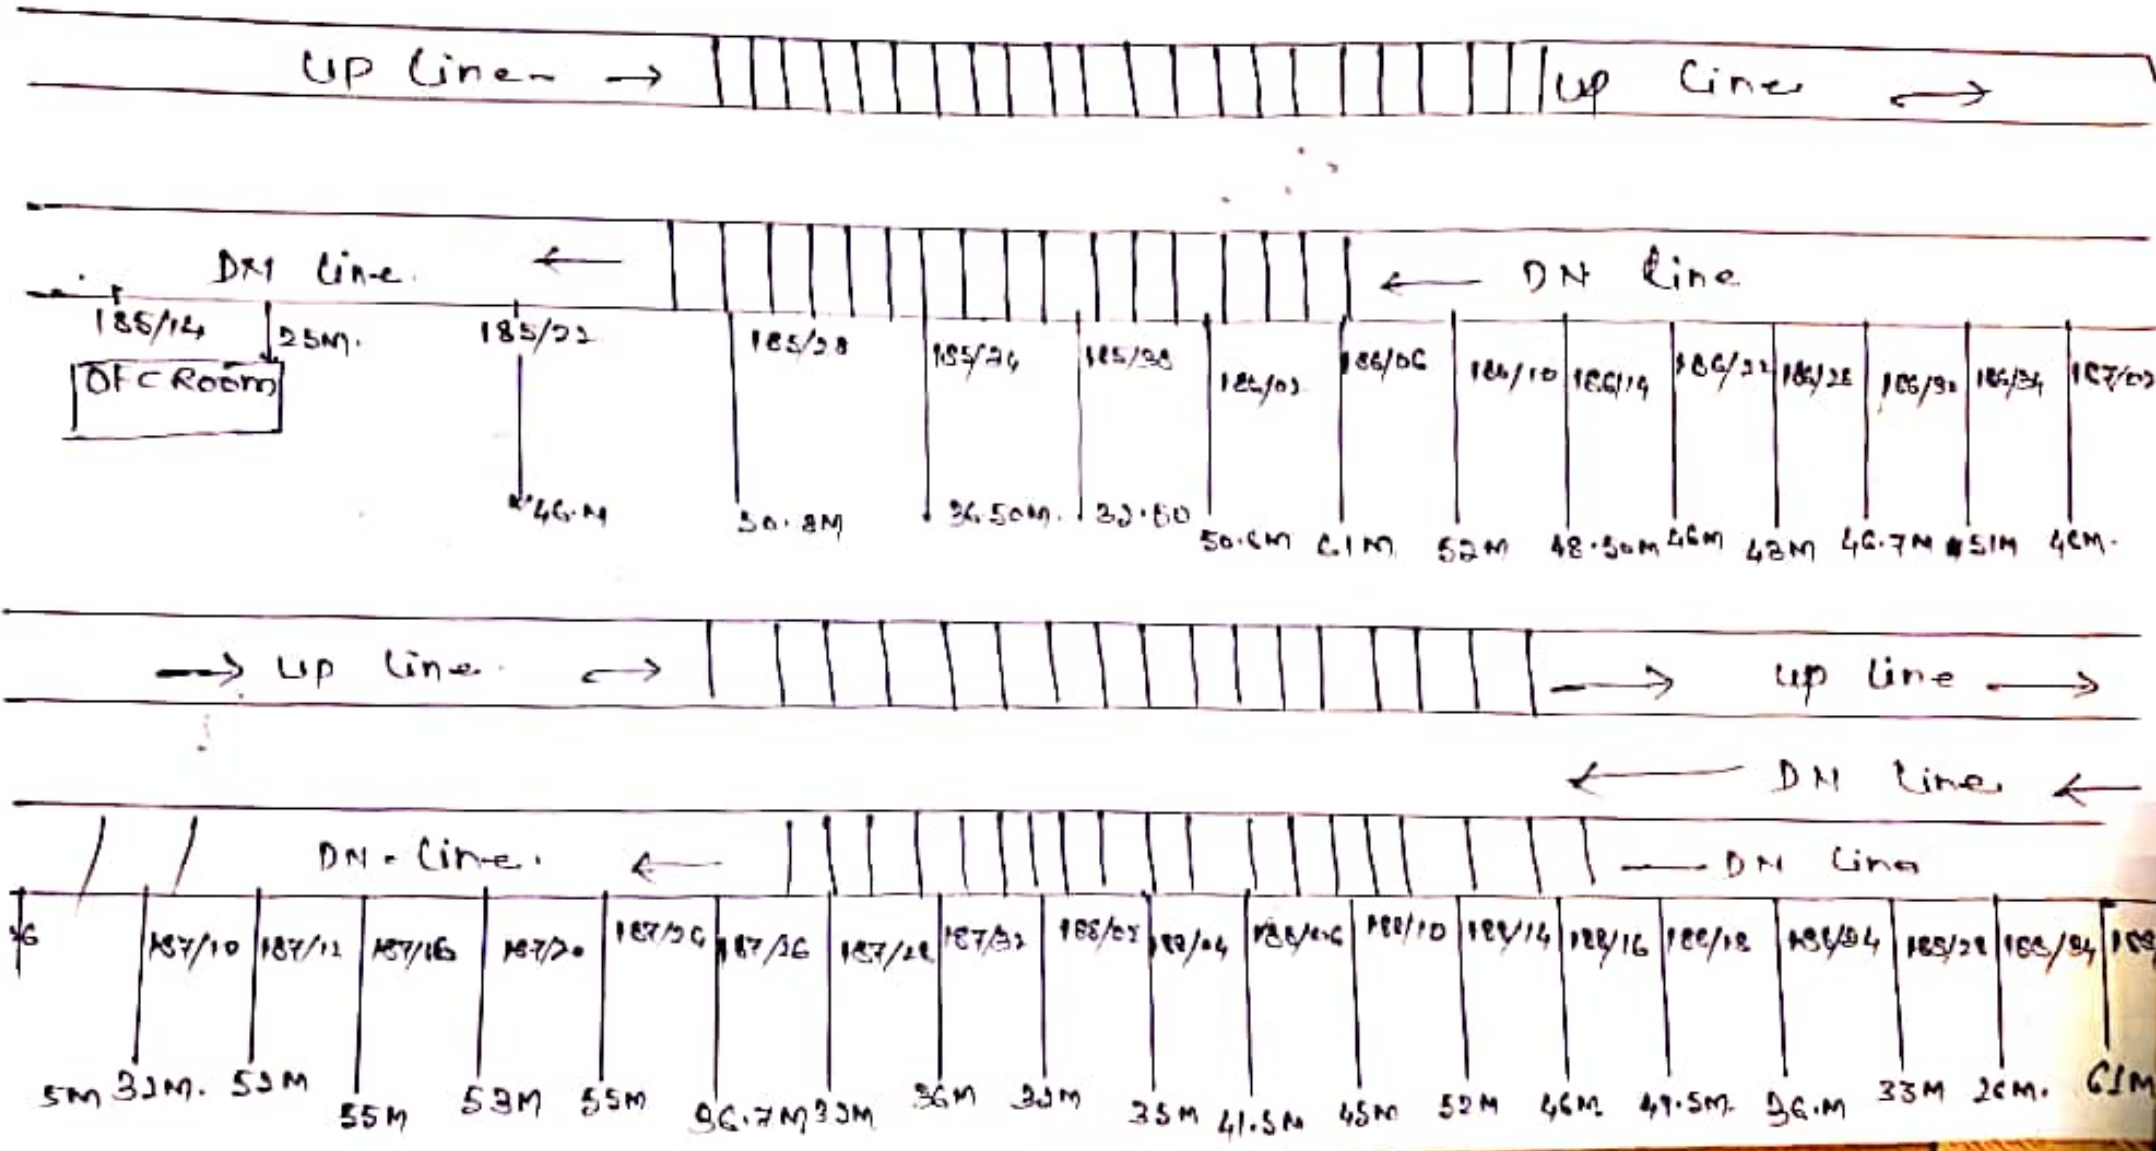 UP Line → UP Line →
DN Line ← ← DN Line
185/14 25M. 185/22 185/28 185/34 185/38 186/02 186/06 186/10 186/14 186/22 186/28 186/34 187/02
OFC Room
46.M 30.8M 36.50M. 50.6M 61M 52M 48.50M 46M 43M 46.7M 51M 46M.
→ UP Line → → UP Line →
← DN Line ←
DN-Line. ← DN Line
187/10 187/12 187/16 187/20 187/26 187/28 187/32 188/02 188/04 188/06 188/10 188/14 188/16 188/18 188/28 188/34
5M 32M. 52M 55M 53M 55M 36.7M 33M 36M 32M 35M 41.5M 45M 52M 46M 49.5M. 36.M 33M 26M. 61M